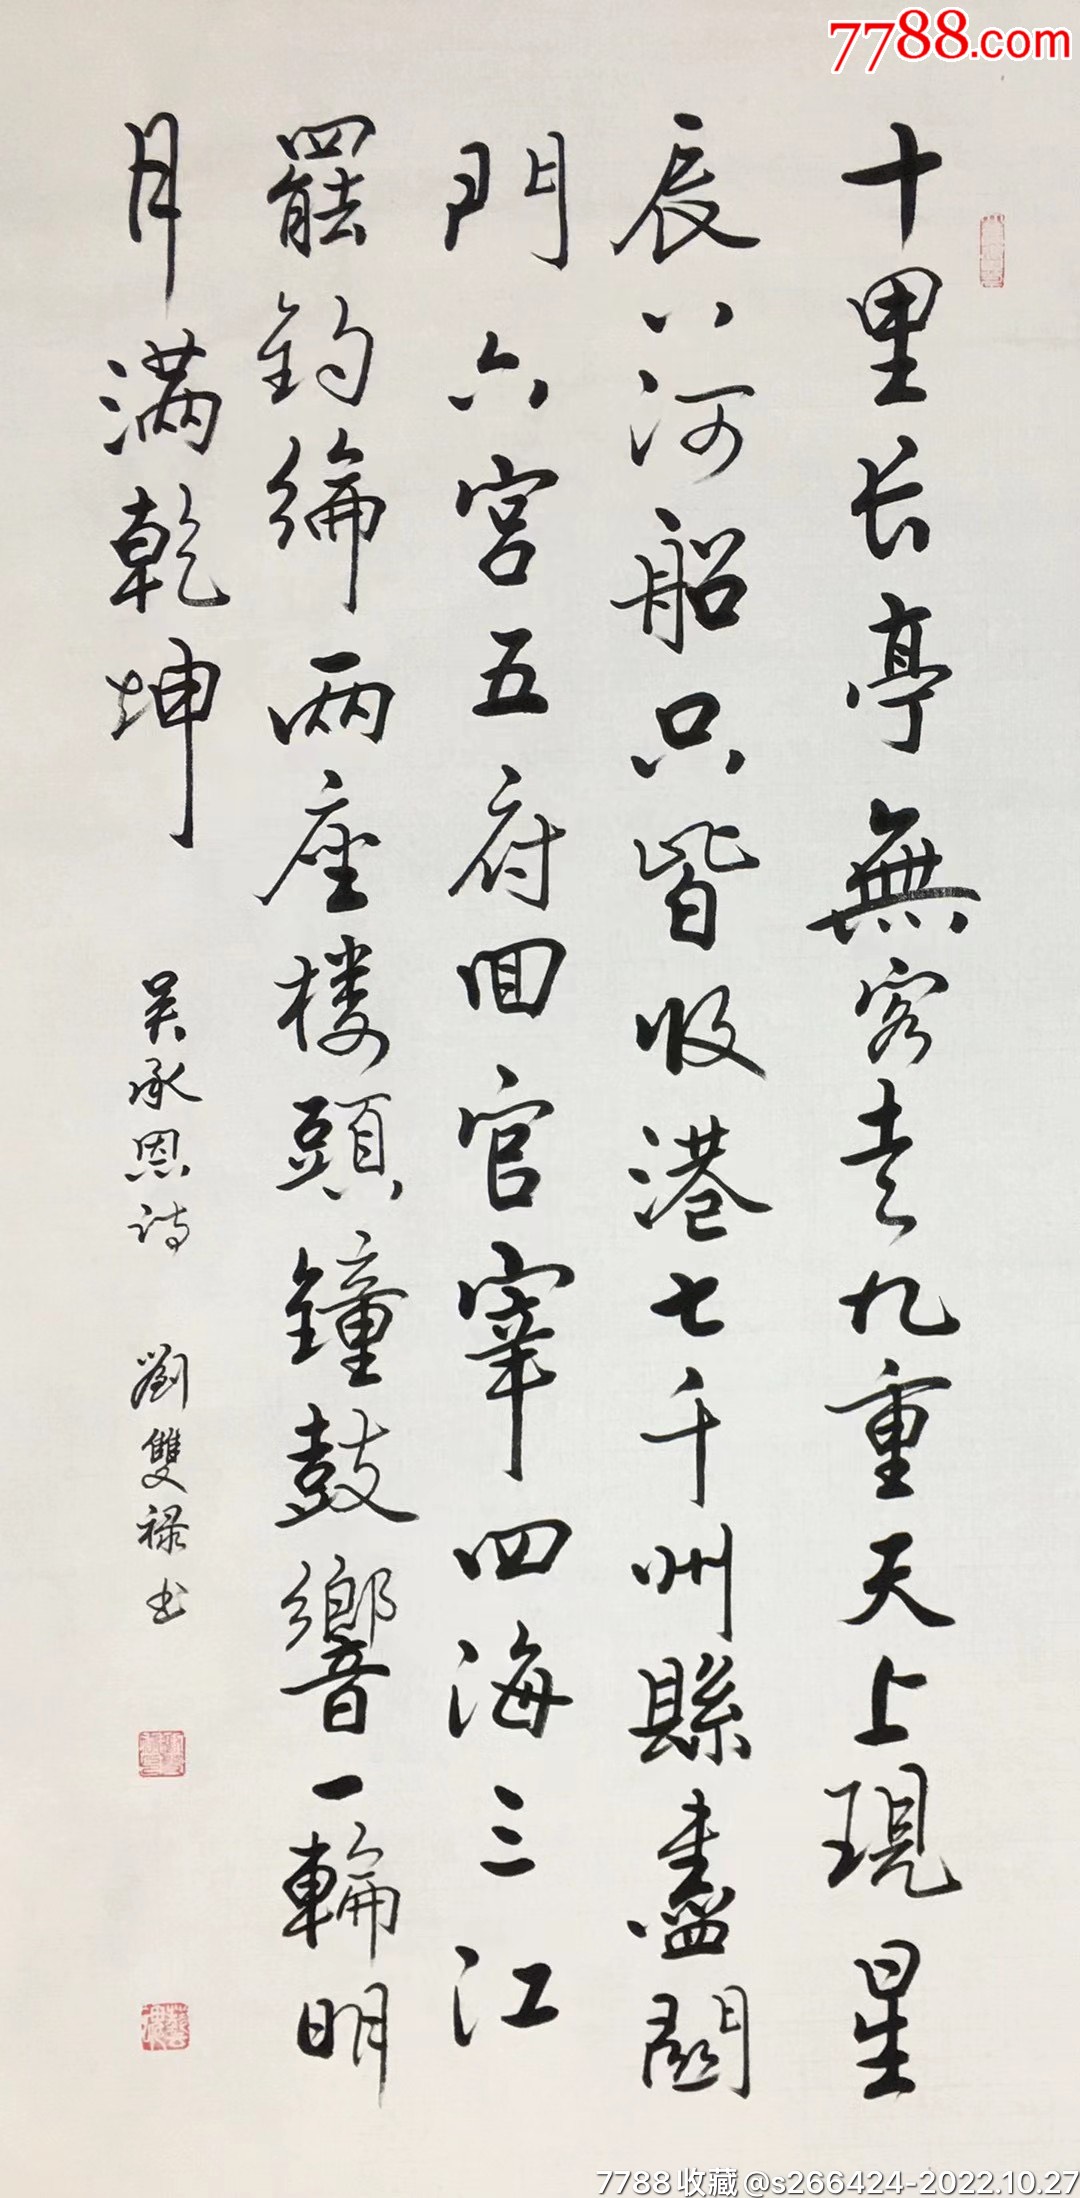 7788.com
十里长亭無客走九重天上現星
辰八河船只皆收港七千州縣盡關
門六宮五府囬官宰四海三江
罷釣綸两座楼頭鐘鼓響一輪明
月满乾坤 吴承恩诗 劉雙禄书
7788收藏@s266424-2022.10.27